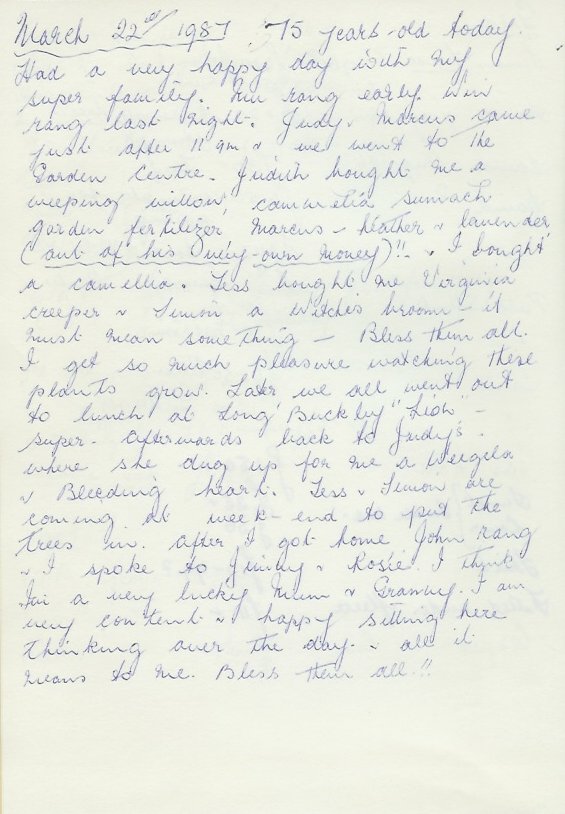 March 22nd 1987. 75 years-old today.
Had a very happy day with my
super family. rang early. Win
rang last night. Judy & Marcus came
just after 11 am & we went to the
Garden Centre. Judith bought me a
weeping willow, cammelia sumach
garden fertilizer Marcus - heather & lavender
(out of his very-own money)!! & I bought
a camellia. Tess bought me Virginia
creeper & Simon a Witch's broom - it
must mean something - Bless them all.
I get so much pleasure watching these
plants grow. Later we all went out
to lunch at Long Buckby "Lion" -
super. afterwards back to Judy's
where she dug up for me a Weigela
& Bleeding heart. Tess & Simon are
coming at week-end to put the
trees in. After I got home John rang
& I spoke to Jimmy & Rosie. I think
I'm a very lucky Mum & Granny. I am
very content & happy sitting here
thinking over the day. & all it
means to me. Bless them all.!!